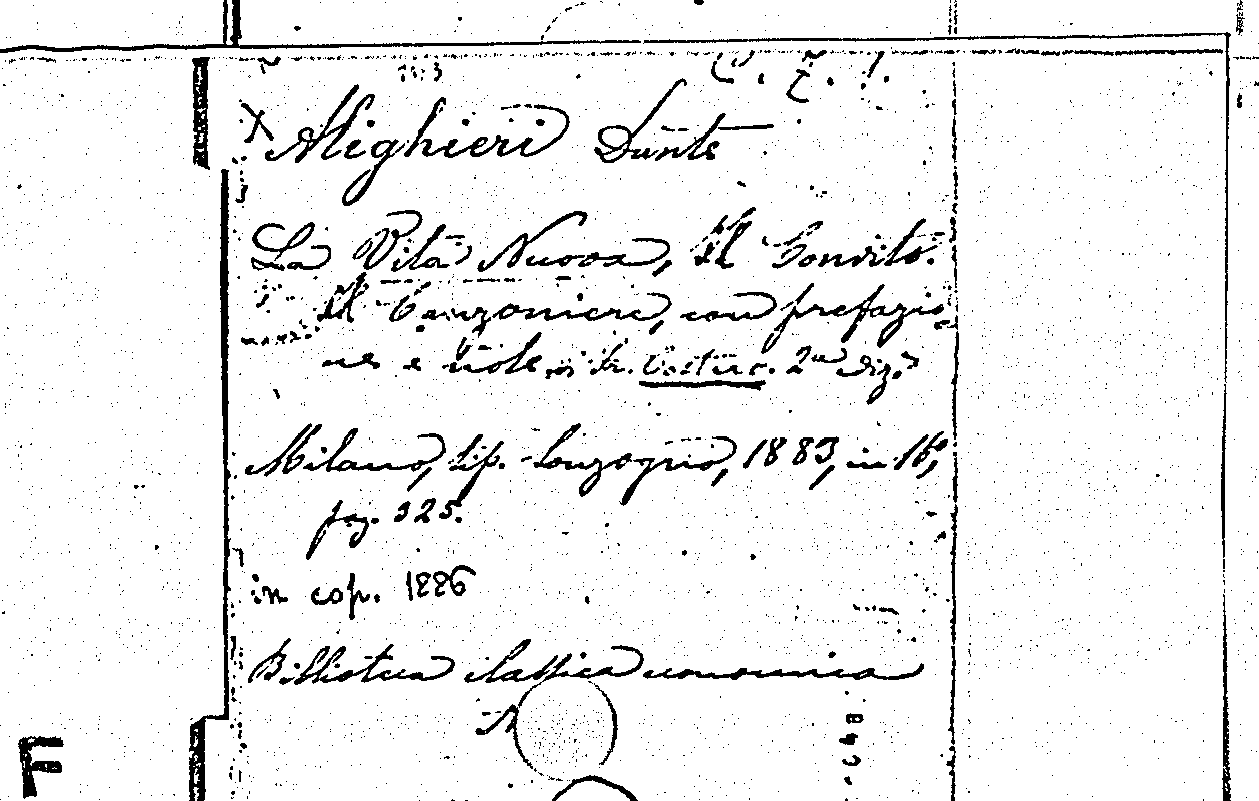 Alighieri Dante
La Vita Nuova, Il Convito.
Il Canzoniere, con prefazio-
ne e note di Fr. Costèro. 2ª ediz.e
Milano, tip. Sonzogno, 1883, in 16°,
pag. 325.
in cop. 1886
Biblioteca classica economica
F